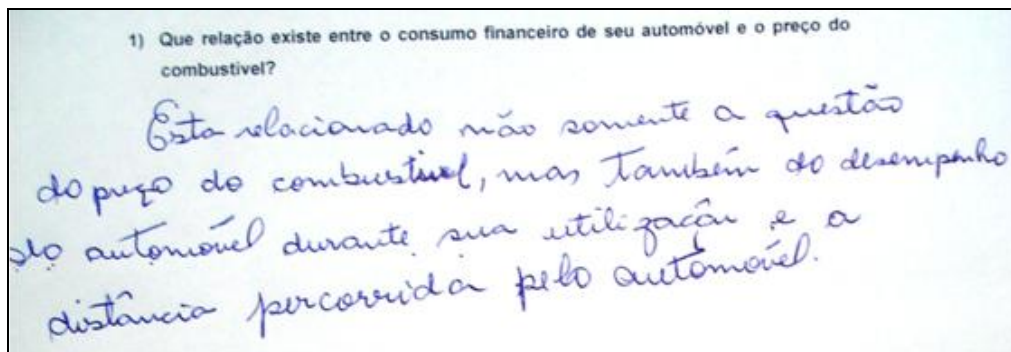 1) Que relação existe entre o consumo financeiro de seu automóvel e o preço do
combustível?
Esta relacionado não somente a questão
do preço do combustivel, mas também do desempenho
do automóvel durante sua utilização e a
distância percorrida pelo automóvel.